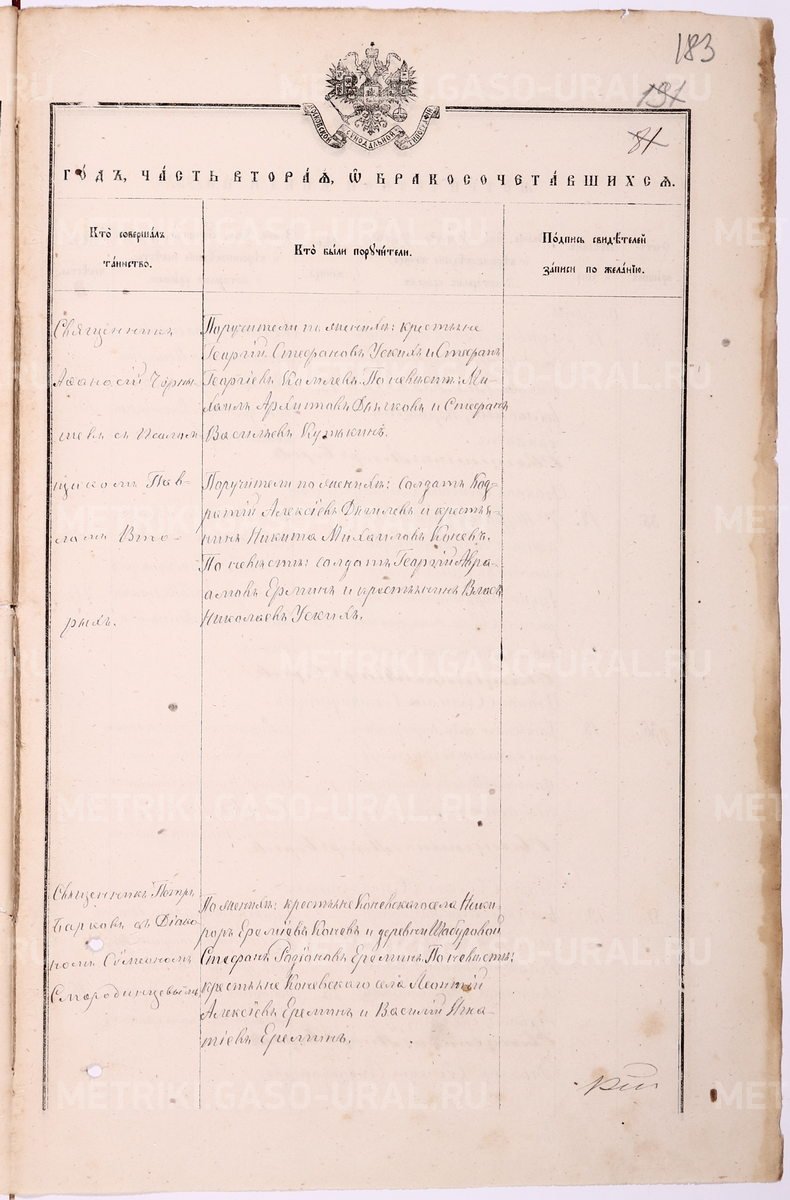 183
191
81
ГО́ДЪ, ЧА́СТЬ ВТОРА́Ѧ, Ѡ БРАКОСОЧЕТА́ВШИХСѦ.
Кто̀ соверша́лъ
та́инство.
Кто̀ бы́ли поручи́тели.
По́дпись свидѣ́телей
за́писи по жела́нїю.
Священникъ
Аѳанасій Черны
шевъ съ Псалом
щикомъ Пав
ломъ Вто-
рыхъ.
Поручители по женихѣ: крестьяне
Георгій Стефановъ Ускихъ и Стефанъ
Георгіевъ Ко По невѣстѣ: Ми-
хаилъ Архиповъ Дьячковъ и Стефанъ
Васильевъ
Поручители по женихѣ: солдатъ Код-
ратій Алексіевъ и крестья-
нинъ Никита Михаиловъ Коневъ.
По невѣстѣ: солдатъ Георгій Авра-
амовъ Ереминъ и крестьянинъ Власъ
Николаевъ Ускихъ.
Священникъ Петръ
Барковъ съ Діако-
номъ Сѵмеономъ
Смородинцевымъ
По женихѣ: крестьяне Коневскаго села Ники-
форъ Ереміевъ Коневъ и деревни Шабуровой
Стефанъ Родіоновъ Ереминъ. По невѣстѣ:
крестьяне Коневскаго села Леонтій
Алексіевъ Ереминъ и Василій Игна-
тіевъ Ереминъ.
METRIKI.GASO-URAL.RU